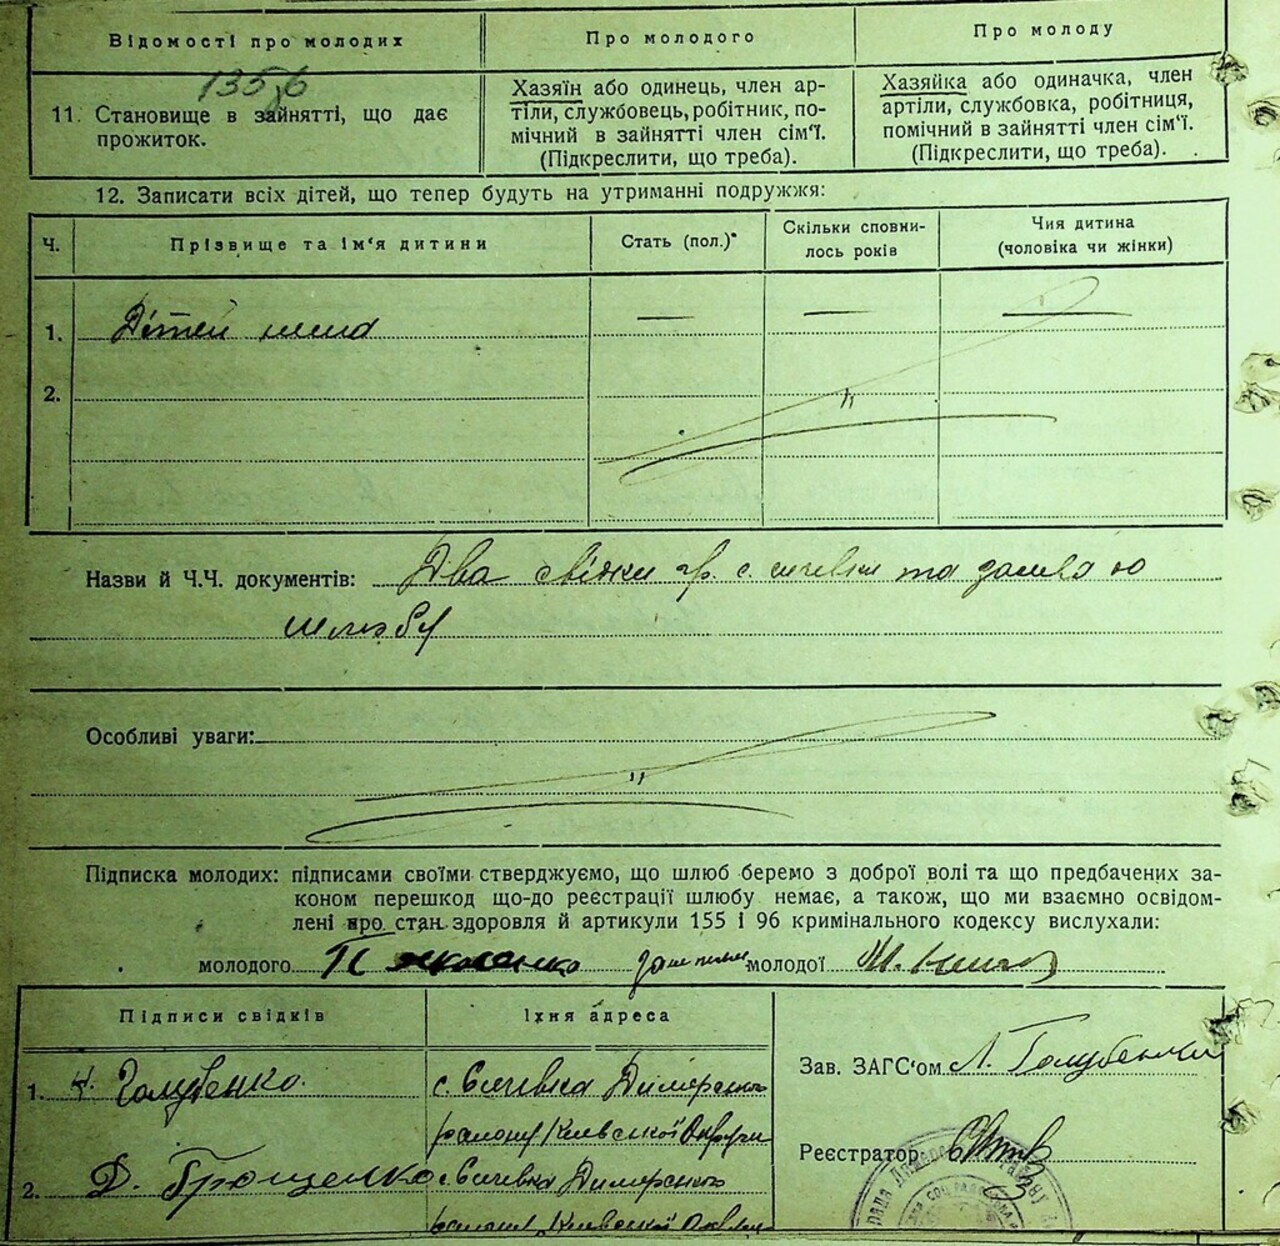 Відомості про молодих
Про молодого
Про молоду
1356
11. Становище в зайнятті, що дає
прожиток.
Хазяїн або одинець, член ар-
тілі, службовець, робітник, по-
мічний в зайнятті член сім'ї.
(Підкреслити, що треба).
Хазяйка або одиначка, член
артілі, службовка, робітниця,
помічний в зайнятті член сім'ї.
(Підкреслити, що треба).
12. Записати всіх дітей, що тепер будуть на утриманні подружжя:
Ч.
Прізвище та ім'я дитини
Стать (пол.)
Скільки сповни-
лось років
Чия дитина
(чоловіка чи жінки)
1. Дітей нема — — —
2. "
Назви й Ч.Ч. документів: Два свідки гр. с. та
шлюбу
Особливі уваги:
"
Підписка молодих: підписами своїми стверджуємо, що шлюб беремо з доброї волі та що предбачених за-
коном перешкод що-до реєстрації шлюбу немає, а також, що ми взаємно освідом-
лені про стан здоровля й артикули 155 і 96 кримінального кодексу вислухали:
молодого
молодої
Підписи свідків
Їхня адреса
1. Голубенко.
с. Сичевка Димерського
району Київської Округи
2. Д. Грощенко
с. Сичевка Димерського
району Київської Округи
Зав. ЗАГС'ом Л. Голубенко
Реєстратор